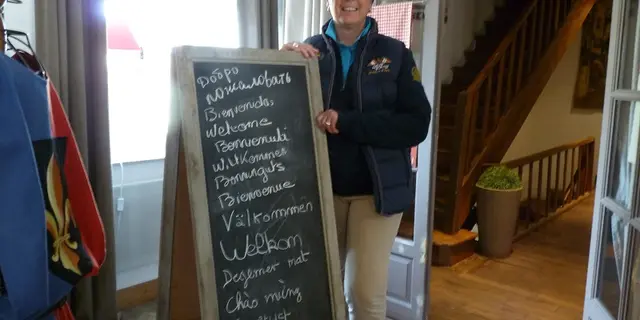 Добро
пожаловать
Bienvenidos
Welcome
Benvenuti
Willkommen
Benvinguts
Bienvenue
Välkommen
Welkom
Degemer mat
Chào mừng